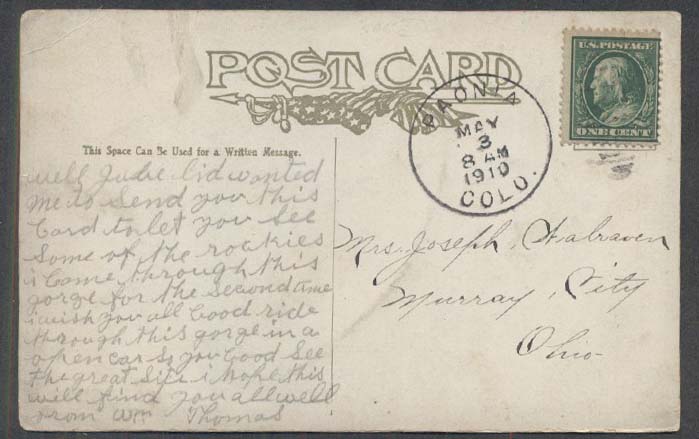 POST CARD
U.S. POSTAGE
ONE CENT
PAONIA
MAY
3
8 AM
1910
COLO.
This Space Can Be Used for a Written Message.
well Julie Cid wanted
me to send you this
Card to let you see
Some of the rockies
i Came through this
gorge for the second time
i wish you all Cood ride
through this gorge in a
open car so you Cood See
the great Site i hope this
will find you all well
from Wm Thomas
Mrs. Joseph
Murray, City
Ohio